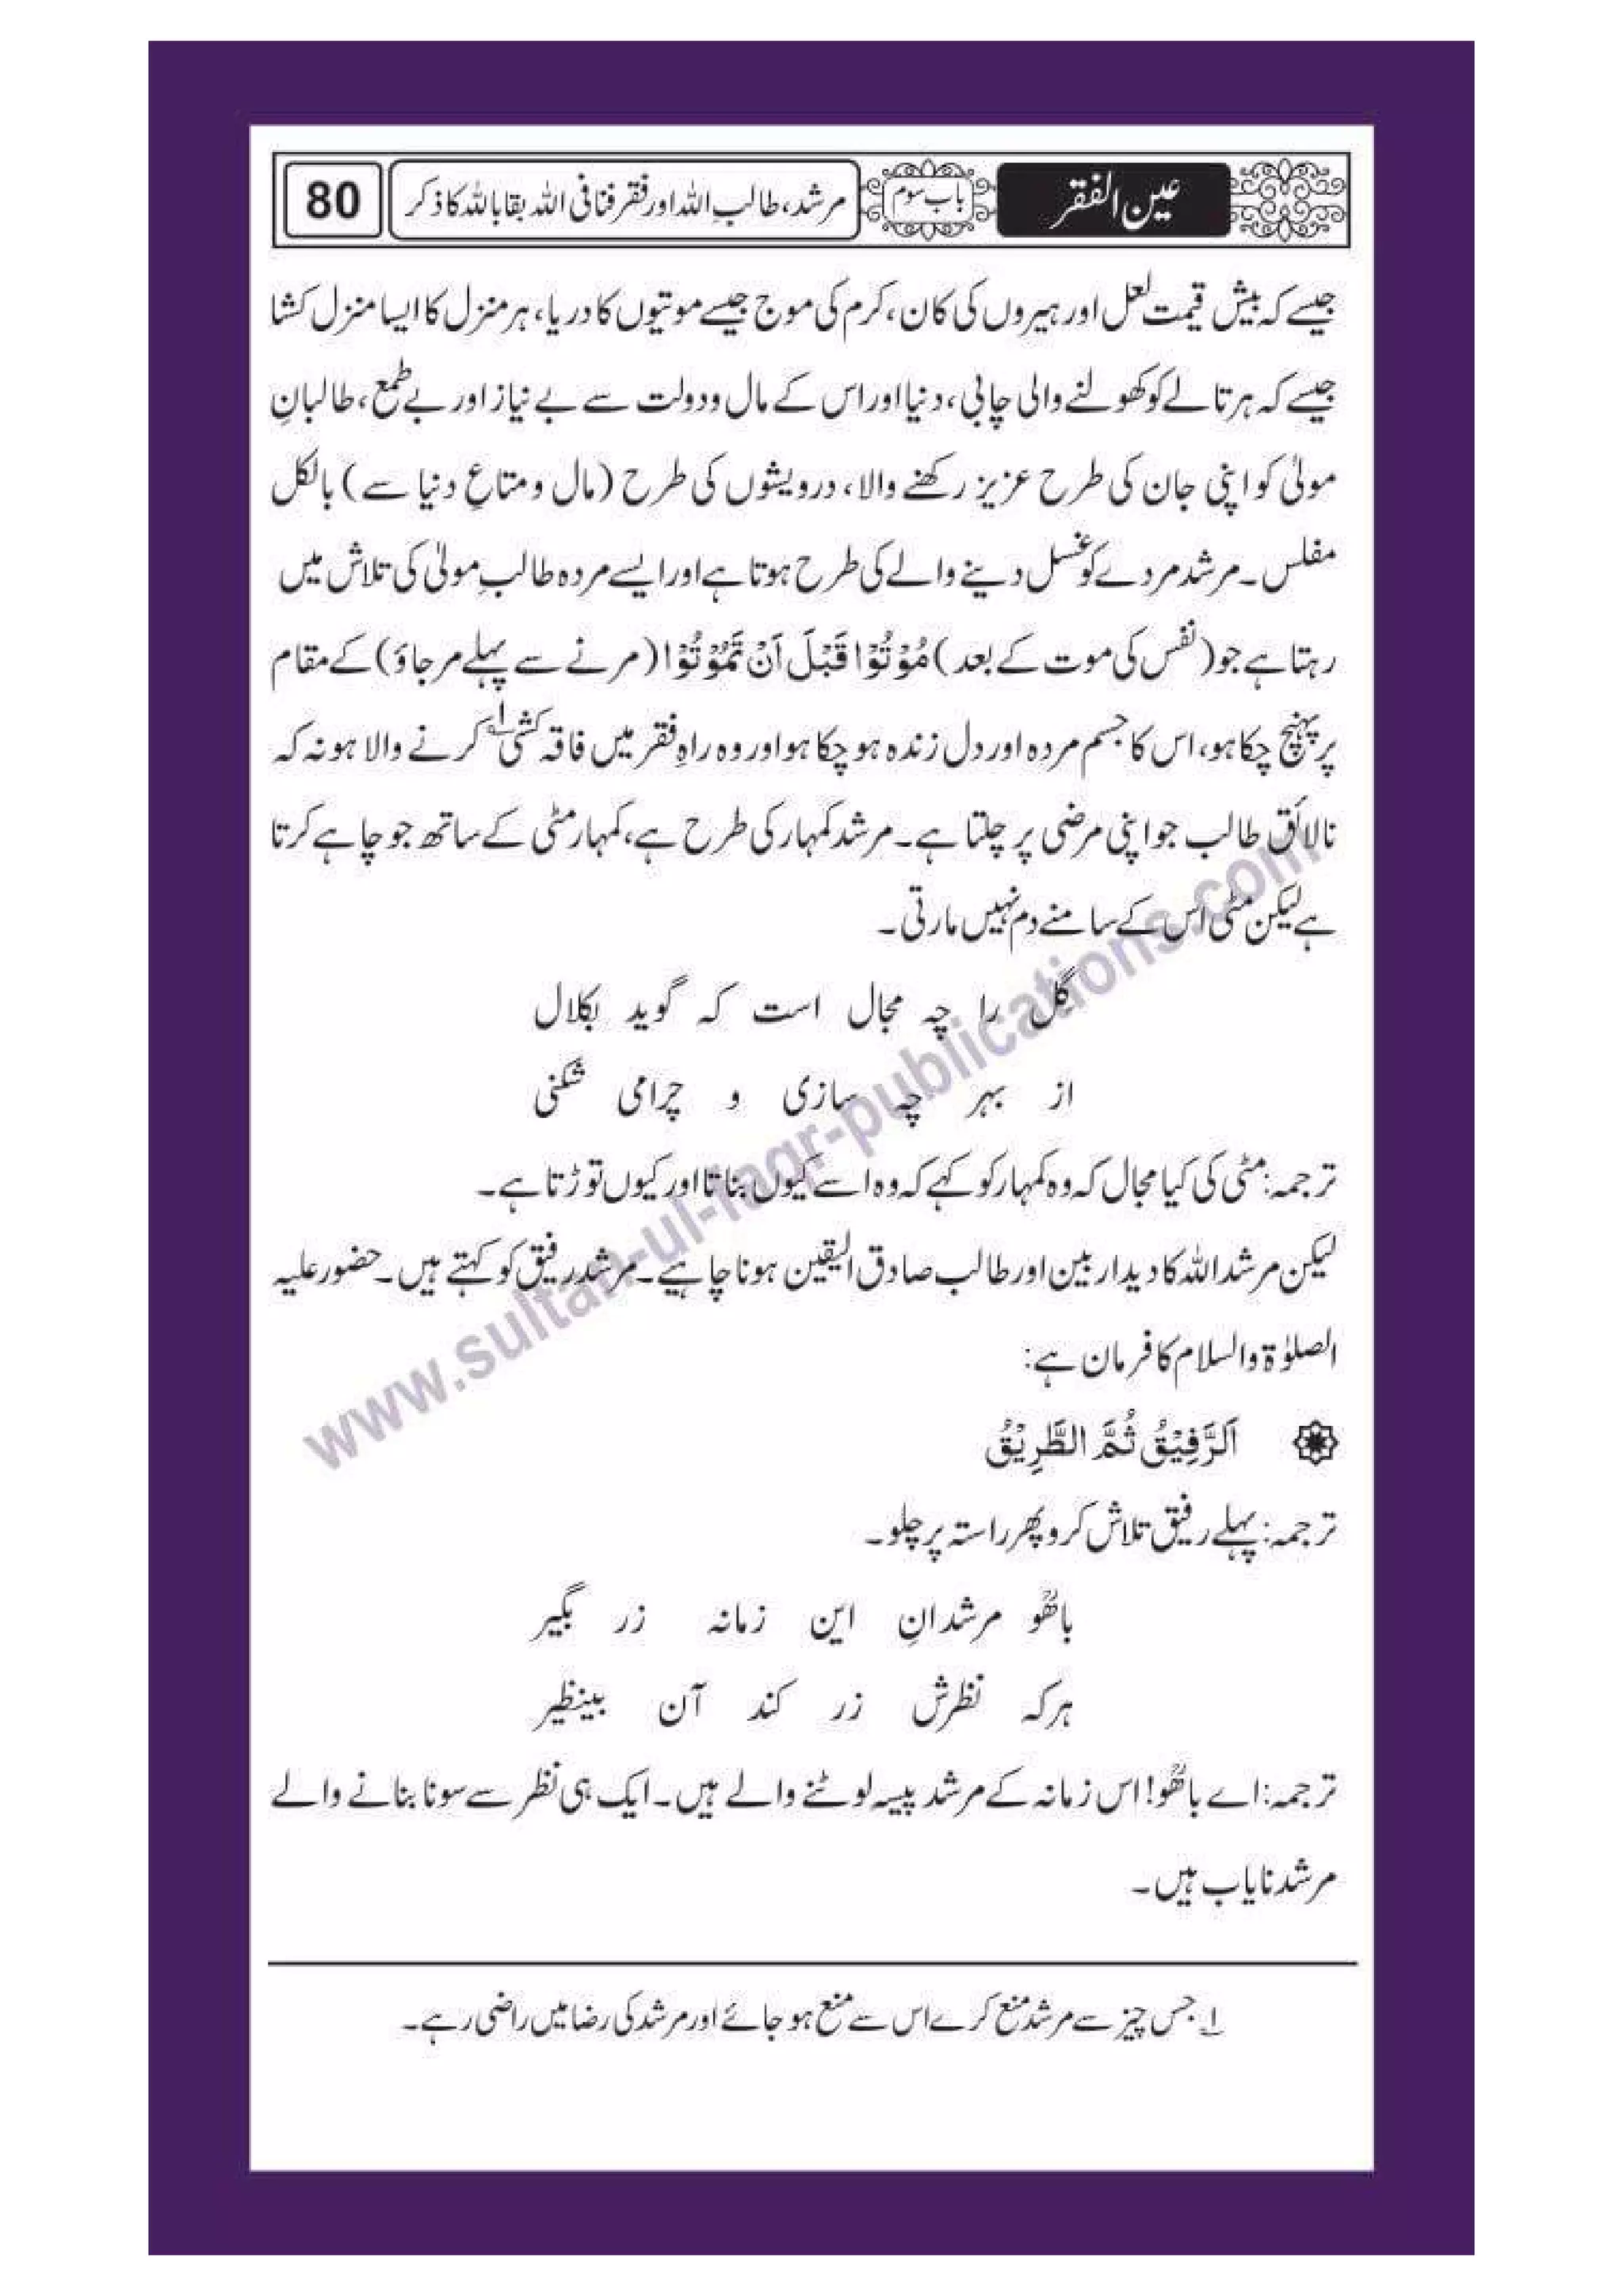 عین الفقر
باب سوم
مرشد، طالبِ اللہ اور فقر فنا فی اللہ بقا باللہ کا ذکر
80
جیسے کہ بیش قیمت لعل اور ہیروں کی کان، کرم کی موج جیسے موتیوں کا دریا، ہر منزل کا ایسا منزل کشا
جیسے کہ ہر تالے کو کھولنے والی چابی، دنیا اور اس کے مال و دولت سے بے نیاز اور بے طمع، طالبانِ
مولیٰ کو اپنی جان کی طرح عزیز رکھنے والا، درویشوں کی طرح (مال و متاعِ دنیا سے) بالکل
مفلس۔ مرشد مردے کو غسل دینے والے کی طرح ہوتا ہے اور ایسے مردہ طالبِ مولیٰ کی تلاش میں
رہتا ہے جو (نفس کی موت کے بعد) مُوْتُوْا قَبْلَ اَنْ تَمُوْتُوْا (مرنے سے پہلے مر جاؤ) کے مقام
پر پہنچ چکا ہو، اس کا جسم مردہ اور دل زندہ ہو چکا ہو اور وہ راہِ فقر میں فاقہ کشی۱؎ کرنے والا ہو نہ کہ
نالائق طالب جو اپنی مرضی پر چلتا ہے۔ مرشد کمہار کی طرح ہے، کمہار مٹی کے ساتھ جو چاہے کرتا
ہے لیکن مٹی اس کے سامنے دم نہیں مارتی۔
گل را چہ مجال است کہ گوید بکلال
از بہر چہ سازی و چرامی شکنی
ترجمہ: مٹی کی کیا مجال کہ وہ کمہار کو کہے کہ وہ اسے کیوں بناتا اور کیوں توڑتا ہے۔
لیکن مرشد اللہ کا دیدار بین اور طالب صادق الیقین ہونا چاہیے۔ مرشد رفیق کو کہتے ہیں۔ حضور علیہ
الصلوٰۃ والسلام کا فرمان ہے:
اَلرَّفِیْقُ ثُمَّ الطَّرِیْقُ
ترجمہ: پہلے رفیق تلاش کرو پھر راستہ پر چلو۔
باھُوؒ مرشدانِ این زمانہ زر بگیر
ہرکہ نظرش زر کند آن بینظیر
ترجمہ: اے باھُوؒ! اس زمانہ کے مرشد پیسہ لوٹنے والے ہیں۔ ایک ہی نظر سے سونا بنانے والے
مرشد نایاب ہیں۔
۱؎ جس چیز سے مرشد منع کرے اس سے منع ہو جائے اور مرشد کی رضا میں راضی رہے۔
www.sultan-ul-faqr-publications.com